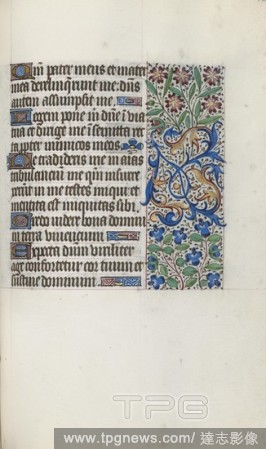 Qm̄ pater meus et mater
mea dereliquerūt me: dn̄s
autem assumpsit me.
Legem pone m̄ dn̄e ī via
tua et dirige me ī semitā rec
ta ꝓpter inimicos meos.
Ne tradideris me in aīas
tribulanciū me qm̄ insurre
xerūt in me testes iniqui et
mentita est iniquitas sibi.
Credo videre bona domini
in terra viuencium
Expecta dn̄m viriliter
age confortetur cor tuum et
sustine dominum.
TPG
www.tpgnews.com／達志影像